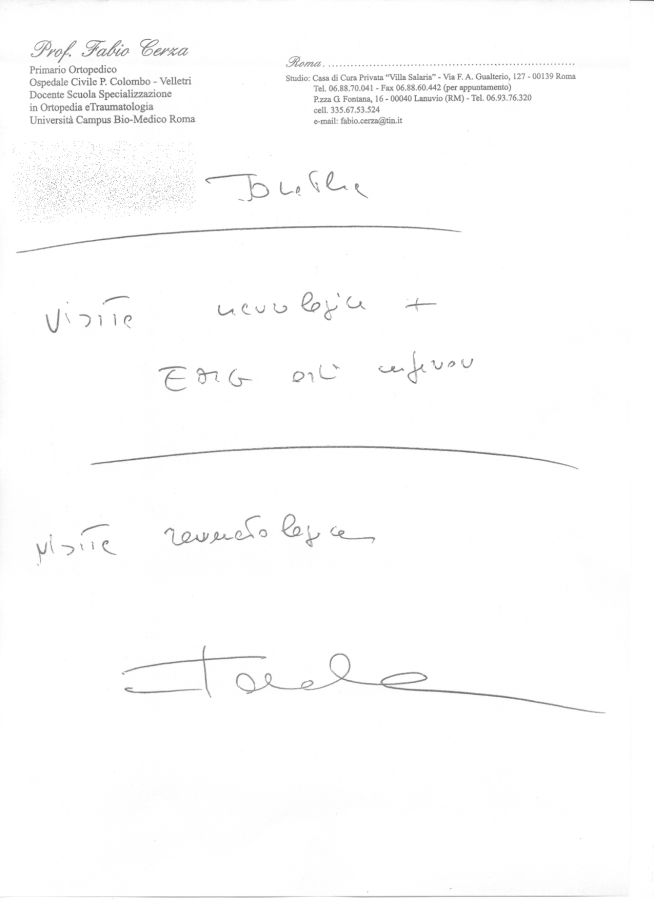 Prof. Fabio Cerza
Primario Ortopedico
Ospedale Civile P. Colombo - Velletri
Docente Scuola Specializzazione
in Ortopedia eTraumatologia
Università Campus Bio-Medico Roma
Roma.
Studio: Casa di Cura Privata "Villa Salaria" - Via F. A. Gualterio, 127 - 00139 Roma
Tel. 06.88.70.041 - Fax 06.88.60.442 (per appuntamento)
P.zza G. Fontana, 16 - 00040 Lanuvio (RM) - Tel. 06.93.76.320
cell. 335.67.53.524
e-mail: fabio.cerza@tin.it
visita neurologica +
EMG arti inferiori
visita reumatologica